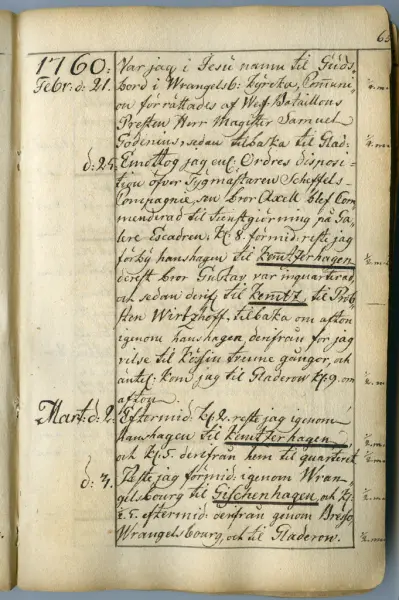 63
1760:
Febr: d: 21. Var jag i Jesu namn til Guds-
bord i Wrangelsb: kyrcka, Communi-
on förrättades af West Bataillons
Presten Herr Magister Samuel
Godenius, sedan tilbaka til Glad:
d: 25. Emottog jag enl: Ordres disposi-
tion öfver Tygmästaren Scheffels
Compagnie, sen bror Axell blef Com
menderad til tienstgiörning på Ga-
lere Escadren, Kl. 8. förmid: reste jag
förbij hanshagen til Kemtzerhagen
derest bror Gustav var inquarterad,
och sedan derif: til Kemtz, til Prob-
sten Wirtzhoff, tilbaka om afton
igenom hanshagen, derifrån for jag
vilse til Kössin trenne gånger, och
äntel: kom jag til Gladerow kl. 9. om
afton.
Mart: d: 2. Eftermid: kl. 2. reste jag igenom
hanshagen til Kemtzerhagen,
och kl. 5. derifrån hem til quarteret
d: 3. Reste jag förmid: igenom Wran-
gelsbourg til Gischenhagen, och kl:
5. eftermid: derifrån genom
Wrangelsbourg, och til Gladerow.